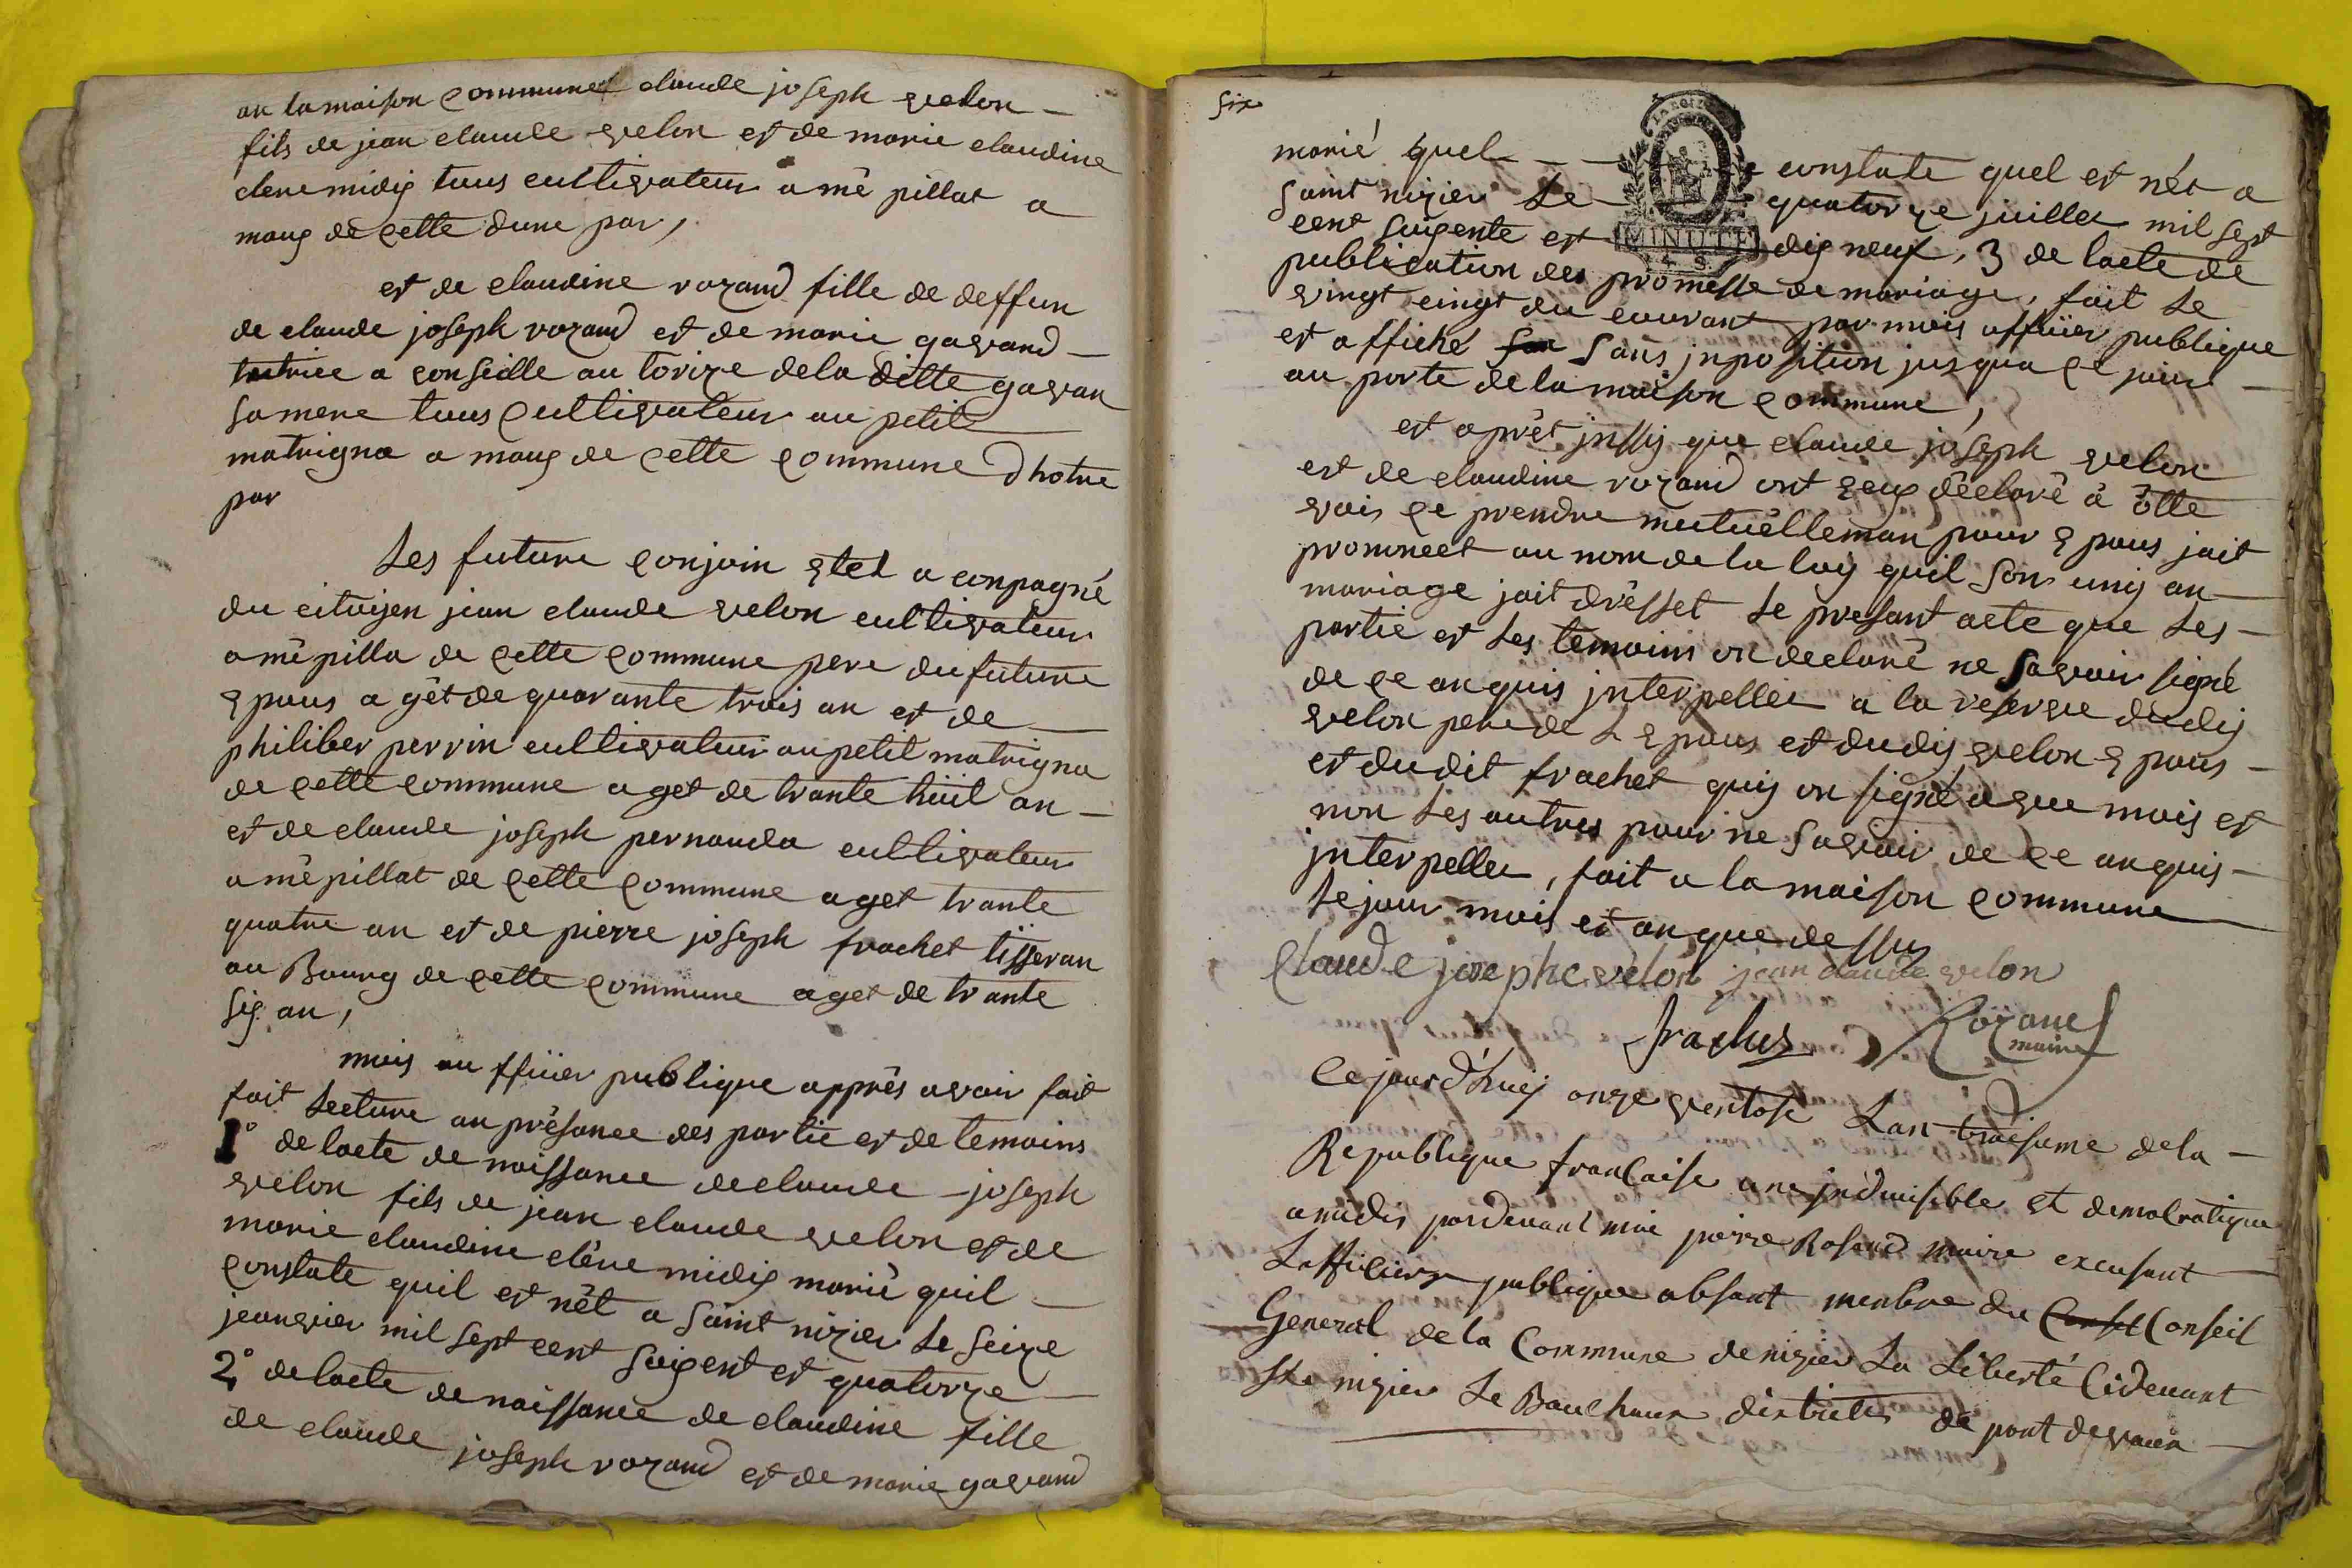 an la maison commune claude joseph velon
fils de jean claude velon et de marie claudine
clere midis tous cultivateur a mê pillat a
maux de cette dune par,
et de claudine rozand fille de deffun
de claude joseph rozand et de marie gavand
tutrice a conseille au torize de la ditte gavan
sa mere tous cultivateur au petit
matrigna a maux de cette commune d hotre
par
Les future conjoin etet a conpagné
du citoijen jean claude velon cultivateur
a mê pilla de cette commune pere du future
epous a gêt de quarante trois an et de
philiber perrin cultivateur au petit matrigna
de cette commune aget de trante hüit an
et de claude joseph pernauda cultivateur
a mê pillat de cette commune aget trante
quatre an et de pierre joseph frachet tisseran
au Bourg de cette commune aget de trante
six an,
mois au ffiier publique apprês avoir fait
fait Lecture an présance des partie et de temoins
1° de lacte de naissance de claude joseph
velon fils de jean claude velon et de
marie claudine clêre midis marié quil
constate quil est nêt a saint nizier Le seize
jeanvier mil sept cent soixent et quatorze
2° de lacte de naissance de claudine fille
de claude joseph rozand et de marie gavand
six
marié quel constate quel et nét a
saint nizier Le quatorze juillet mil sept
MINUTE
cent soixente et dix neuf, 3 de lacte de
publication des promesse de mariage, fait Le
vingt cinqt du courant par mois officier publique
et affiché sans jnposition jusqua ce jour
au porte de la maison commune,
et aprêt jnssij que claude joseph velon
et de claudine rozand ont eux déclaré à otte
vois ce prendre mutuelleman pour epous jait
pronncet au nom de la loy quil son unij an
mariage jait drêsset Le presant acte que Les
partie et Les temoins on declaré ne savoir signé
de ce anquis jnterpeller a la reserve dudis
velon pere de L epous et dudis velon epous
et dudit frachet quij on signé avec mois et
non Les autres pour ne savoir de ce anquis
jnterpeller, fait a la maison commune
Le jour mois et an que dessus
Claude joseph velon jean claude velon
frachet Rozand
maire
Ce jourd'huij onze ventose Lan troisieme de la
Republique francaise une jndiuisible et democratique
amidis pardeuant moi pierre Rosand maire excusant
Lofficier publique absant menbre du Conseil
General de la Commune de nizier La Liberté Cideuant
St nizier Le Bouchoux districte de pont de vaux